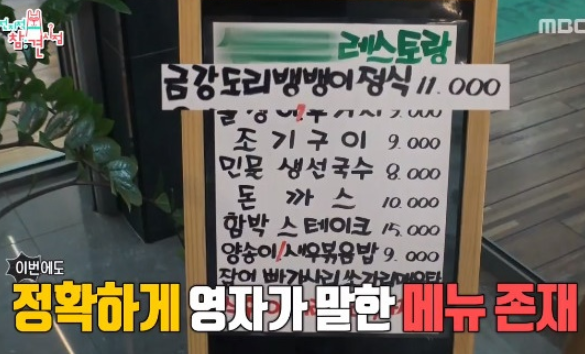 전지적 참견 시점
MBC
레스토랑
금강도리뱅뱅이정식 11.000
조기구이 9.000
민물 생선국수 8.000
돈까스 10.000
함박 스테이크 15.000
양송이! 새우볶음밥 9.000
이번에도
정확하게 영자가 말한 메뉴 존재